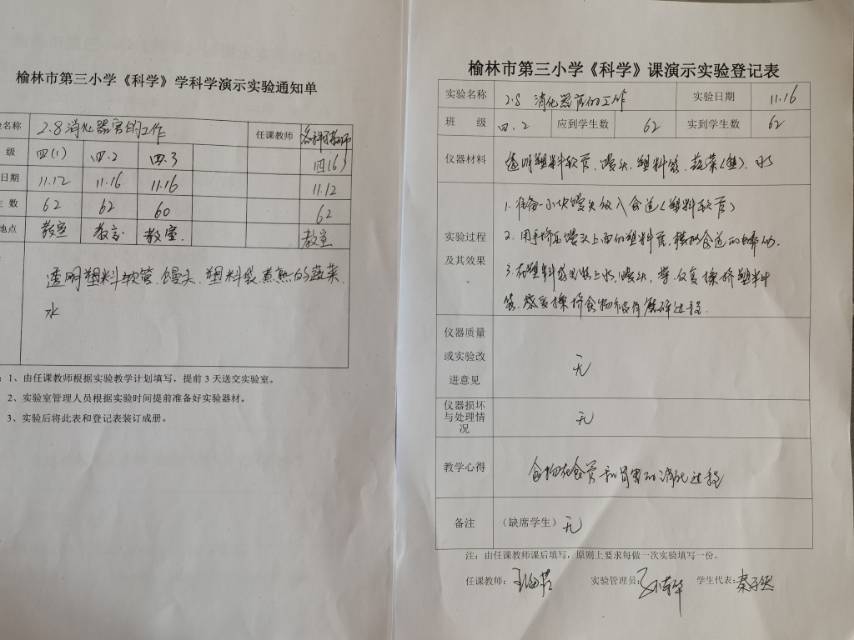 榆林市第三小学《科学》学科学演示实验通知单
名称 2.8消化器官的工作 任课教师
级 四(1) 四.2 四.3 四(6)
日期 11.12 11.16 11.16 11.12
数 62 62 60 62
地点 教室 教室 教室 教室
透明塑料软管.馒头.塑料袋.煮熟的蔬菜.
水
：1、由任课教师根据实验教学计划填写，提前3天送交实验室。
2、实验室管理人员根据实验时间提前准备好实验器材。
3、实验后将此表和登记表装订成册。
榆林市第三小学《科学》课演示实验登记表
实验名称 2.8 消化器官的工作 实验日期 11.16
班 级 四.2 应到学生数 62 实到学生数 62
仪器材料 透明塑料软管.馒头.塑料袋.蔬菜(熟).水
实验过程
及其效果
1.准备一小块馒头放入食道(塑料软管)
2.用手挤压馒头上面的塑料管,模拟食道的蠕动.
3.在塑料袋里装上水,馒头,
袋,
仪器质量
或实验改
进意见
无
仪器损坏
与处理情
况
无
教学心得 食物在食管和胃里的消化过程
备注 （缺席学生）无
注：由任课教师课后填写，原则上要求每做一次实验填写一份。
任课教师： 实验管理员： 学生代表：